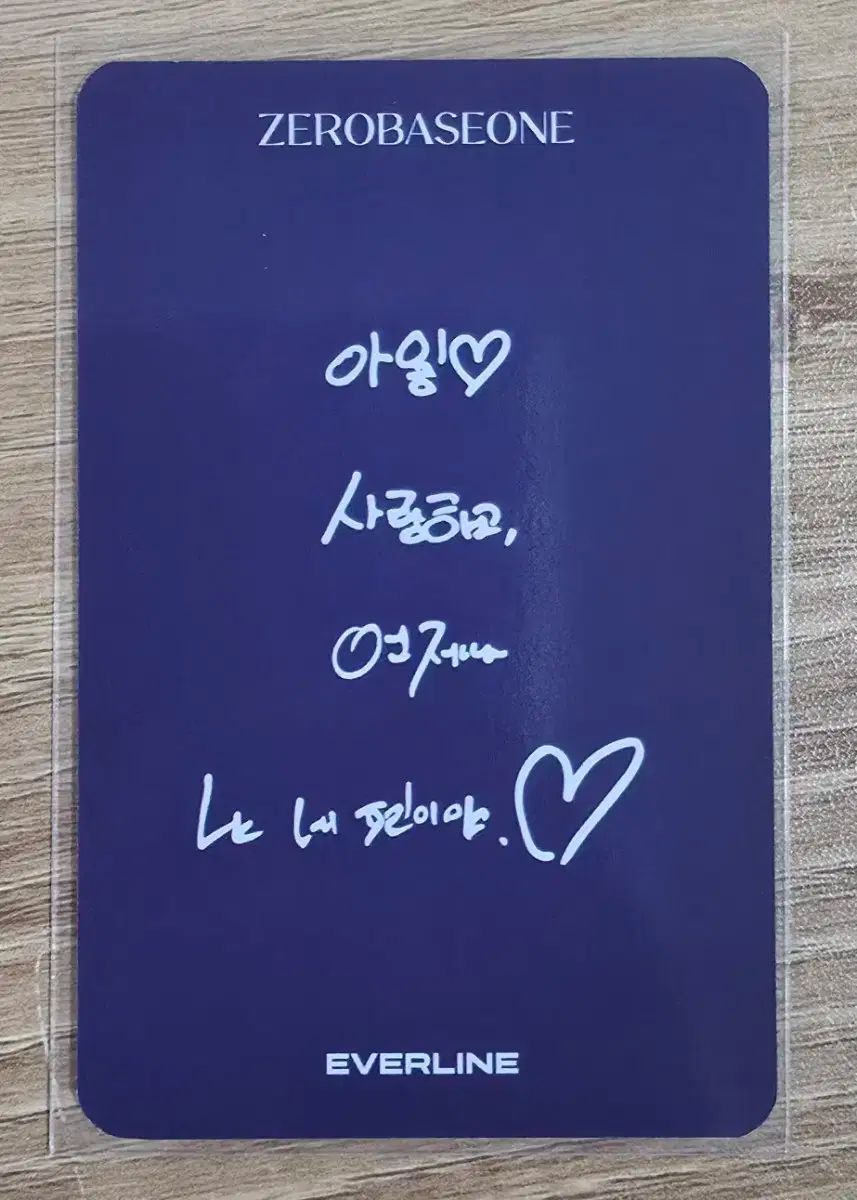 ZEROBASEONE
♡
사랑하고,
언제나
난 네 편이야.♡
EVERLINE